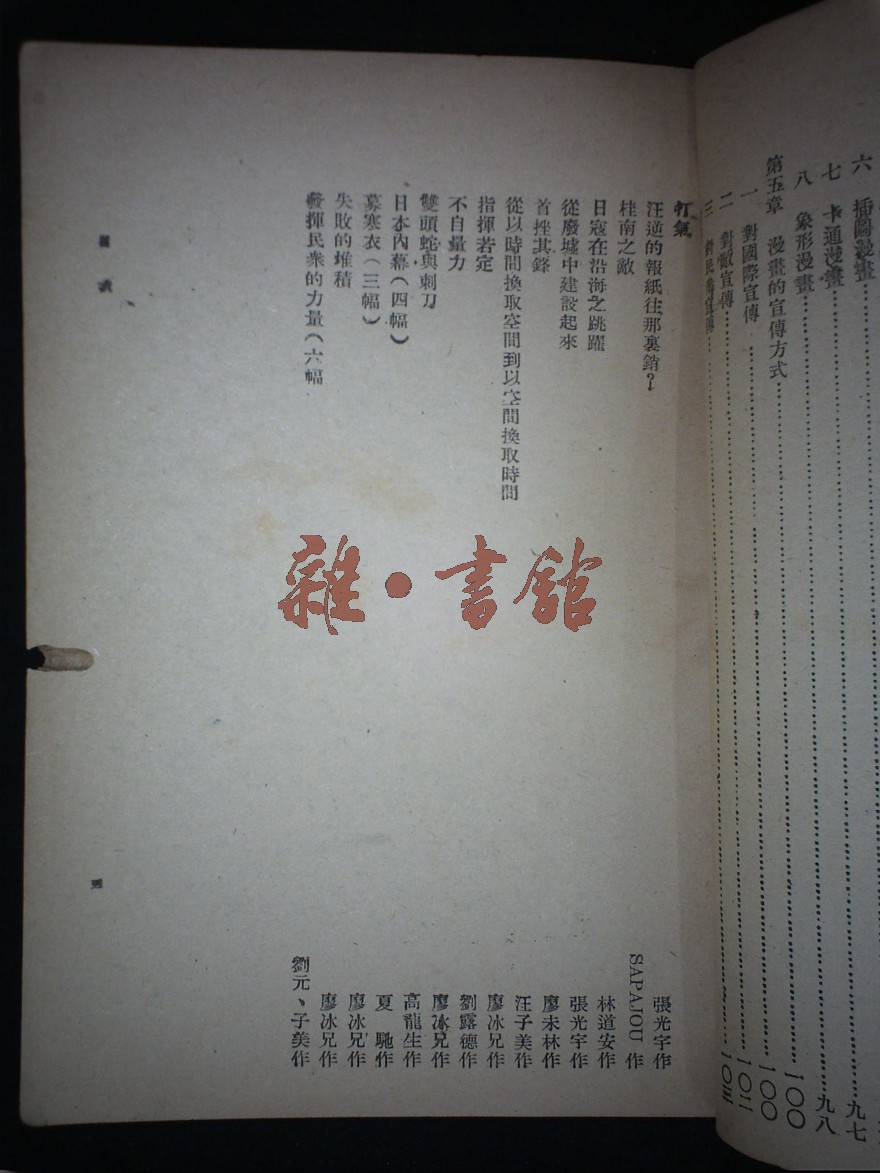 六 插圖漫畫……九七
七 卡通漫畫……九八
八 象形漫畫……一〇〇
第五章 漫畫的宣傳方式……一〇〇
一 對國際宣傳……一〇二
二 對敵宣傳……一〇三
三 對民眾宣傳……
打氣 張光宇作
汪逆的報紙往那裏銷? SAPAJOU 作
桂南之敵 林道安作
日寇在沿海之跳躍 張光宇作
從廢墟中建設起來 廖未林作
首挫其鋒 汪子美作
從以時間換取空間到以空間換取時間 廖冰兄作
指揮若定 劉露德作
不自量力 廖冰兄作
雙頭蛇與刺刀 高龍生作
日本內幕(四幅) 夏 馳作
募寒衣(三幅) 廖冰兄作
失敗的堆積 廖冰兄作
發揮民衆的力量(六幅 劉元、子美作
雜·書館